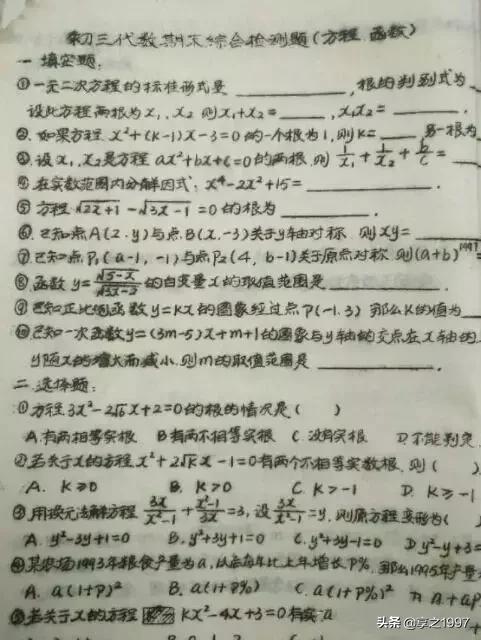 初三代数期末综合检测题(方程.函数)
一 填空题:
①一元二次方程的标准形式是________,根的判别式为
设此方程两根为x₁,x₂ 则x₁+x₂=______,x₁x₂=______.
②.如果方程 x²+(k-1)x-3=0的一个根为1,则k=____,另一根为
③.设x₁,x₂是方程 ax²+bx+c=0的两根.则 1/x₁+1/x₂+b/c=
④.在实数范围内分解因式: x⁴-2x²+15=________.
⑤方程√2x+1-√3x-1=0的根为________.
⑥.已知点A(2.y)与点B(x.-3)关于y轴对称.则xy=______
⑦.已知点P₁(a-1,-1)与点P₂(4,b-1)关于原点对称.则(a+b)¹⁹⁹⁷=
⑧函数y=√5-x/√3x-2的自变量x的取值范围是________.
⑨已知正比例函数y=kx的图象经过点P(-1.3) 那么k的值为
⑩已知一次函数y=(3m-5)x+m+1的图象与y轴的交点在x轴的
y随x的增大而减小.则m的取值范围是________.
二.选择题:
①方程3x²-2√6x+2=0的根的情况是( )
A.有两相等实根 B有两不相等实根 C.没有实根 D.不能判定
②若关于x的方程x²+2√kx-1=0有两个不相等实数根.则( )
A. k≥0 B. k>0 C. k>-1 D. k≥-1
③用换元法解方程 3x/x²-1+x²-1/3x=3,设3x/x²-1=y.则原方程变形为(
A. y²-3y+1=0 B. y²+3y+1=0 C. y²+3y-1=0 D y²-y+3=
④某农场1993年粮食产量为a,以后每年比上年增长P%.那么1995年产量
A. a(1+P)² B. a(1+P%) C. a(1+P%)² D. a+aP
⑤若关于x的方程 kx²-4x+3=0有实
头条 @享之1997